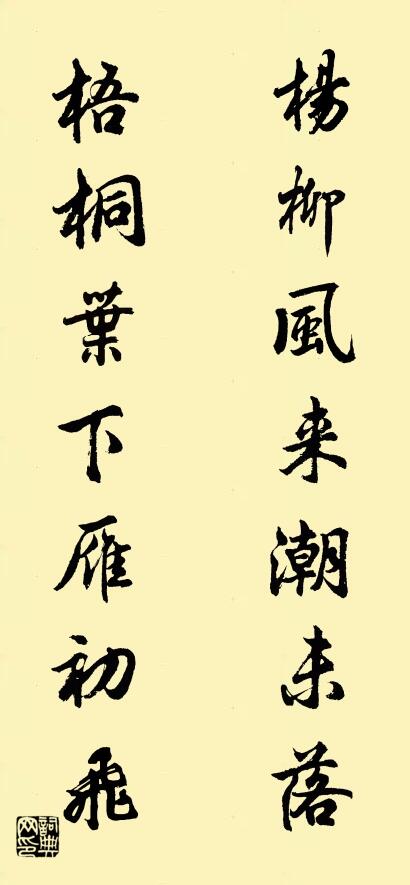 楊柳風来潮未落
梧桐葉下雁初飛
詞典网印